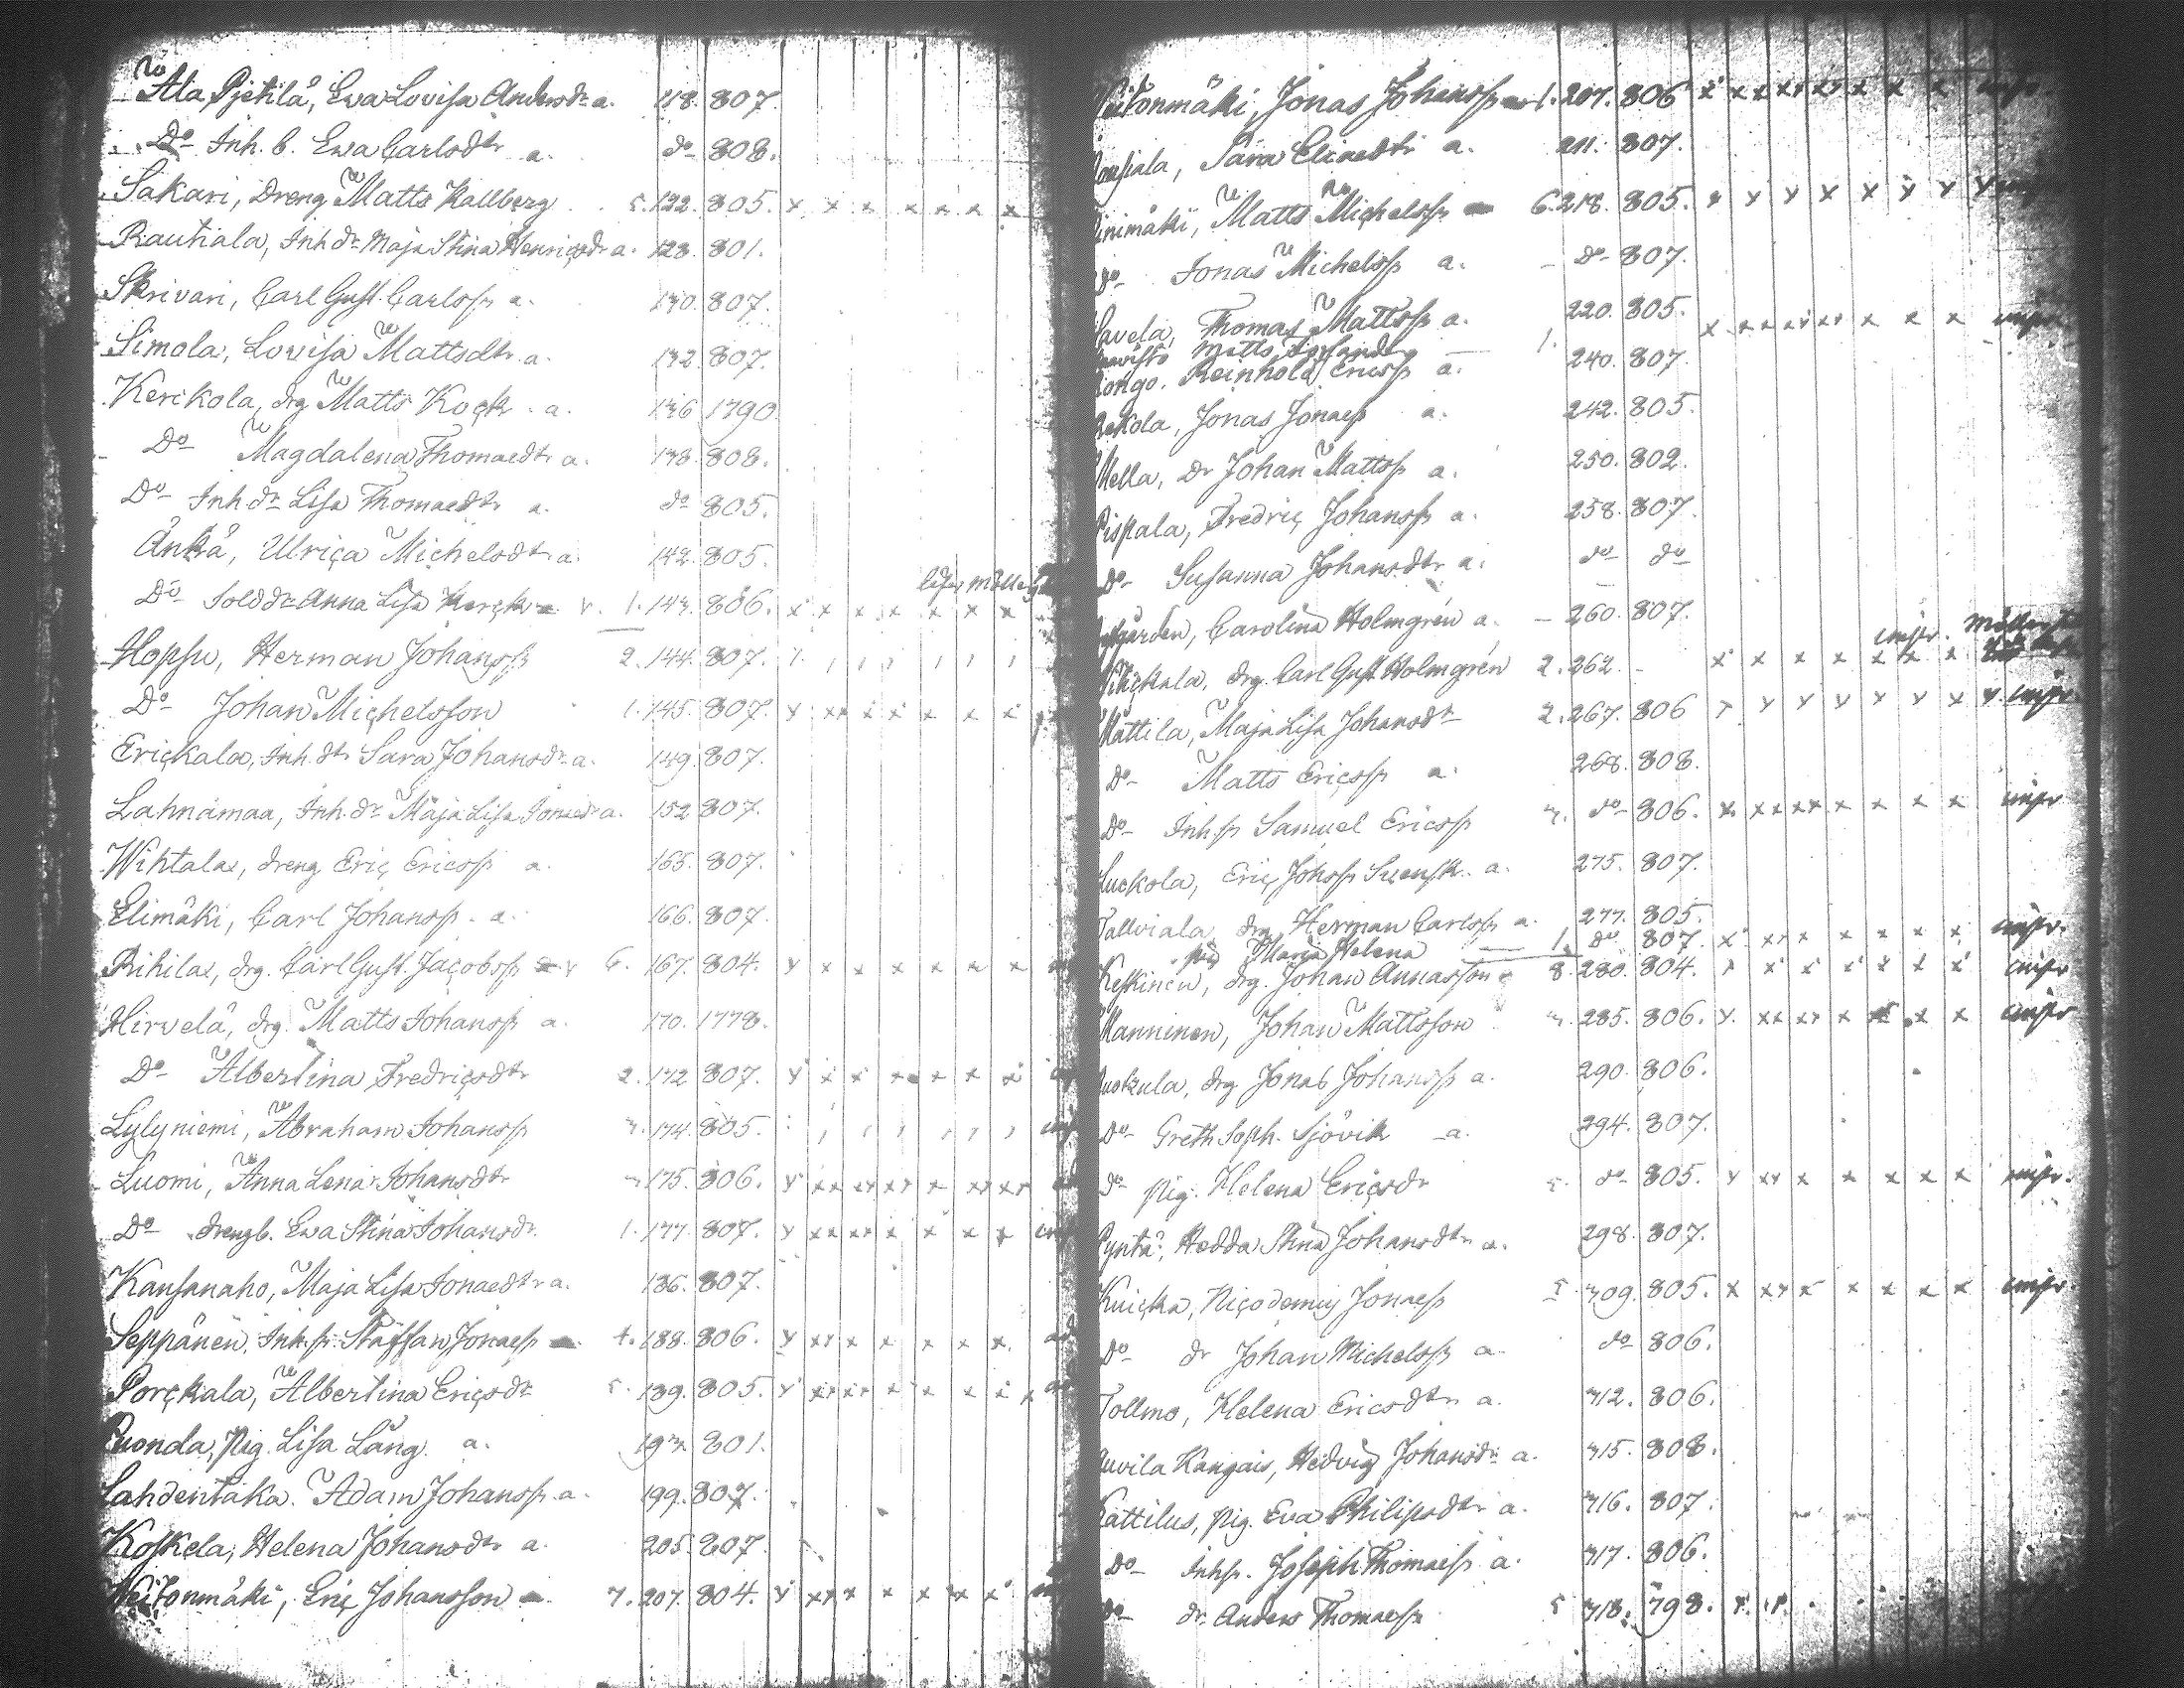 Ala Pjetilä, Ewa Lovisa Andersdr a. 118. 807.
Do Inh. b. Ewa Carlsdtr a. do 808.
Sakari, dreng Matts Kallberg 5. 122. 805. x x x x x x x
Rautiala, Inh dr Maja Stina Henricsdr a. 123. 801.
Skrivari, Carl Gust. Carlsson a. 130. 807.
Simola, Lovisa Mattsdtr. a. 132. 807.
Kerckola, drg Matts Kock. a. 136 1790
Do Magdalena Thomaedtr a. 138. 808.
Do Inh dr Lisa Thomaedtr a. do 805.
Ånkå, Ulrica Michelsdtr a. 142. 805.
Do Sold dr Anna Lisa 1. 143. 806. x x x x x x x
Hopsu, Herman Johanss 2. 144. 807.
Do Johan Michelsson 1. 145. 807. x xx x x x x x
Erickala, Inh. dtr Sara Johansdr a. 149. 807.
Lahnamaa, Inh. dr Maja Lisa Jonaedr a. 152 807.
Wihtala, dreng Eric Ericss a. 165. 807.
Elimäki, Carl Johanss. a. 166. 807.
Rihila, drg. Carl Gust. Jacobss 6. 167. 804. x x x x x x x
Hirvelä, drg. Matts Johanss a. 170. 1778.
Do Albertina Fredricsdtr 2. 172 807. x x x x x x x
Lylyniemi, Abraham Johanss 3. 174. 805.
Luomi, Anna Lena Johansdtr 3. 175. 806. x xx xx xx x xx xx
Do drengb. Ewa Stina Johansdr. 1. 177. 807. x xx xx x x x x
Kansanaho, Maja Lisa Jonaedtr a. 186. 807.
Seppänen, Inh. ss Staffan Jonaess 4. 188. 806. x xx x x x x x.
Porckala, Albertina Ericsdr 5. 189. 805. x xx xx x x x x x
Puonda, pig. Lisa Lång. a. 193. 801.
Lahdentaka. Adam Johanss. a. 199. 807.
Koskela, Helena Johansdtr a. 205. 807
Weitonmäki, Eric Johansson 7. 207. 804. x xx x x x xx x
Weitonmäki, Jonas Johanss 1. 207. 806 x x x xx xx x x x
Sara Eliaedtr a. 211. 807.
Matts Michelss 6. 218. 805. x x x x x x x x
do Jonas Michelss a. do 807.
Thomas Mattss a. 220. 805.
Matts 1. x x x xx xx x x x
Reinhold Ericss a. 240. 807.
Jonas Jonaess a. 242. 805.
Mella, dr Johan Mattss a. 250. 802.
Pispala, Fredric Johanss a. 258. 807.
do Susanna Johansdtr a. do do
Carolina Holmgrén a. 260. 807.
drg. Carl Gust Holmgrén 2. 262. x x x x x x x
Mattila, Maja Lisa Johansdtr 2. 267. 806 x x x x x x x x
do Matts Ericss a. 268. 808.
do Inh. ss Samuel Ericss 3. do 806. x. xx xx x x x x
Eric Johss a. 275. 807.
Tallviala, drg Herman Carlss a. 277. 805.
pig Maria Helena 1. do 807. x xx x x x x x
Keskinen, drg. Johan Annasson 8. 280. 804. x x x x x x x
Manninen, Johan Mattsson 3. 285. 806. x. xx xx x x x x
drg Jonas Johanss a. 290. 806.
do Greth Soph. Sjövik a. 294. 807.
do pig. Helena Ericsdr 5. do 805. x xx x x x x x
Pyntä, Hedda Stina Johansdtr a. 298. 807.
Kuicka, Nicodemus Jonaess 5. 309. 805. x xx x x x x x
do dr Johan Michelss a. do 806.
Tollmo, Helena Ericsdtr a. 312. 806.
Kangais, Hedvig Johansdr a. 315. 808.
Kattilus, pig. Eva Philipsdtr a. 316. 807.
do Inh ss. Joseph Thomaess a. 317. 806.
do dr. Anders Thomaess 5 318. 798.